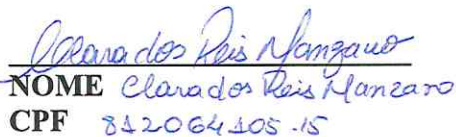 Clara dos Reis Manzano
NOME Clara dos Reis Manzano
CPF 812064105-15